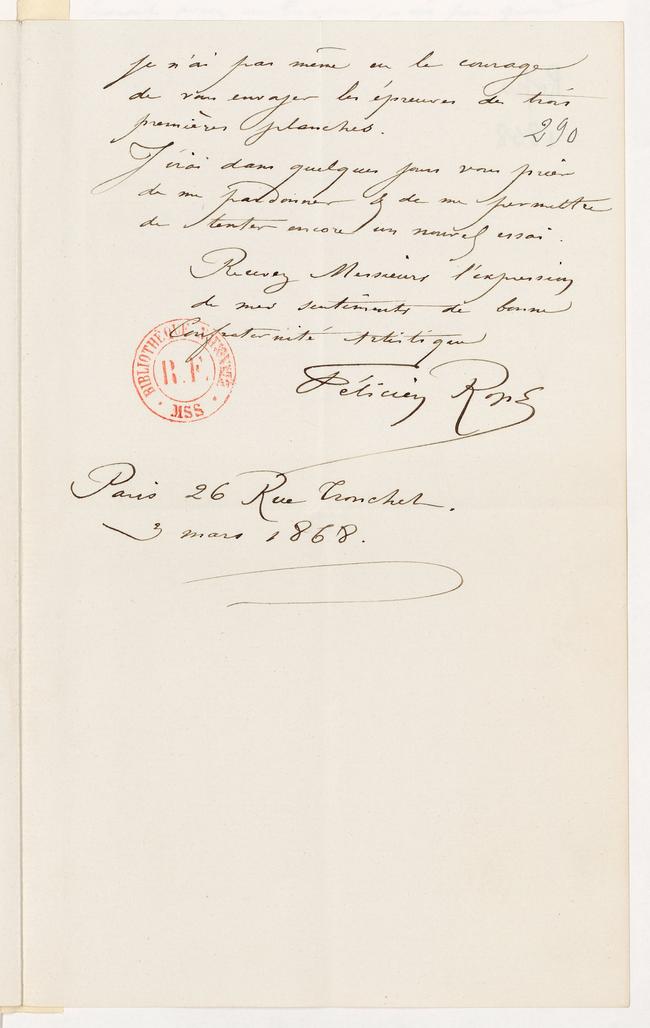 je n'ai pas même eu le courage
de vous envoyer les épreuves des trois
premières planches.
290
J'irai dans quelques jours vous prier
de me pardonner & de me permettre
de tenter encore un nouvel essai.
Recevez Messieurs l'expression
de mes sentiments de bonne
Confraternité Artistique
Félicien Rops
BIBLIOTHÈQUE NATIONALE
R.F.
MSS
Paris 26 Rue Tronchet.
3 mars 1868.